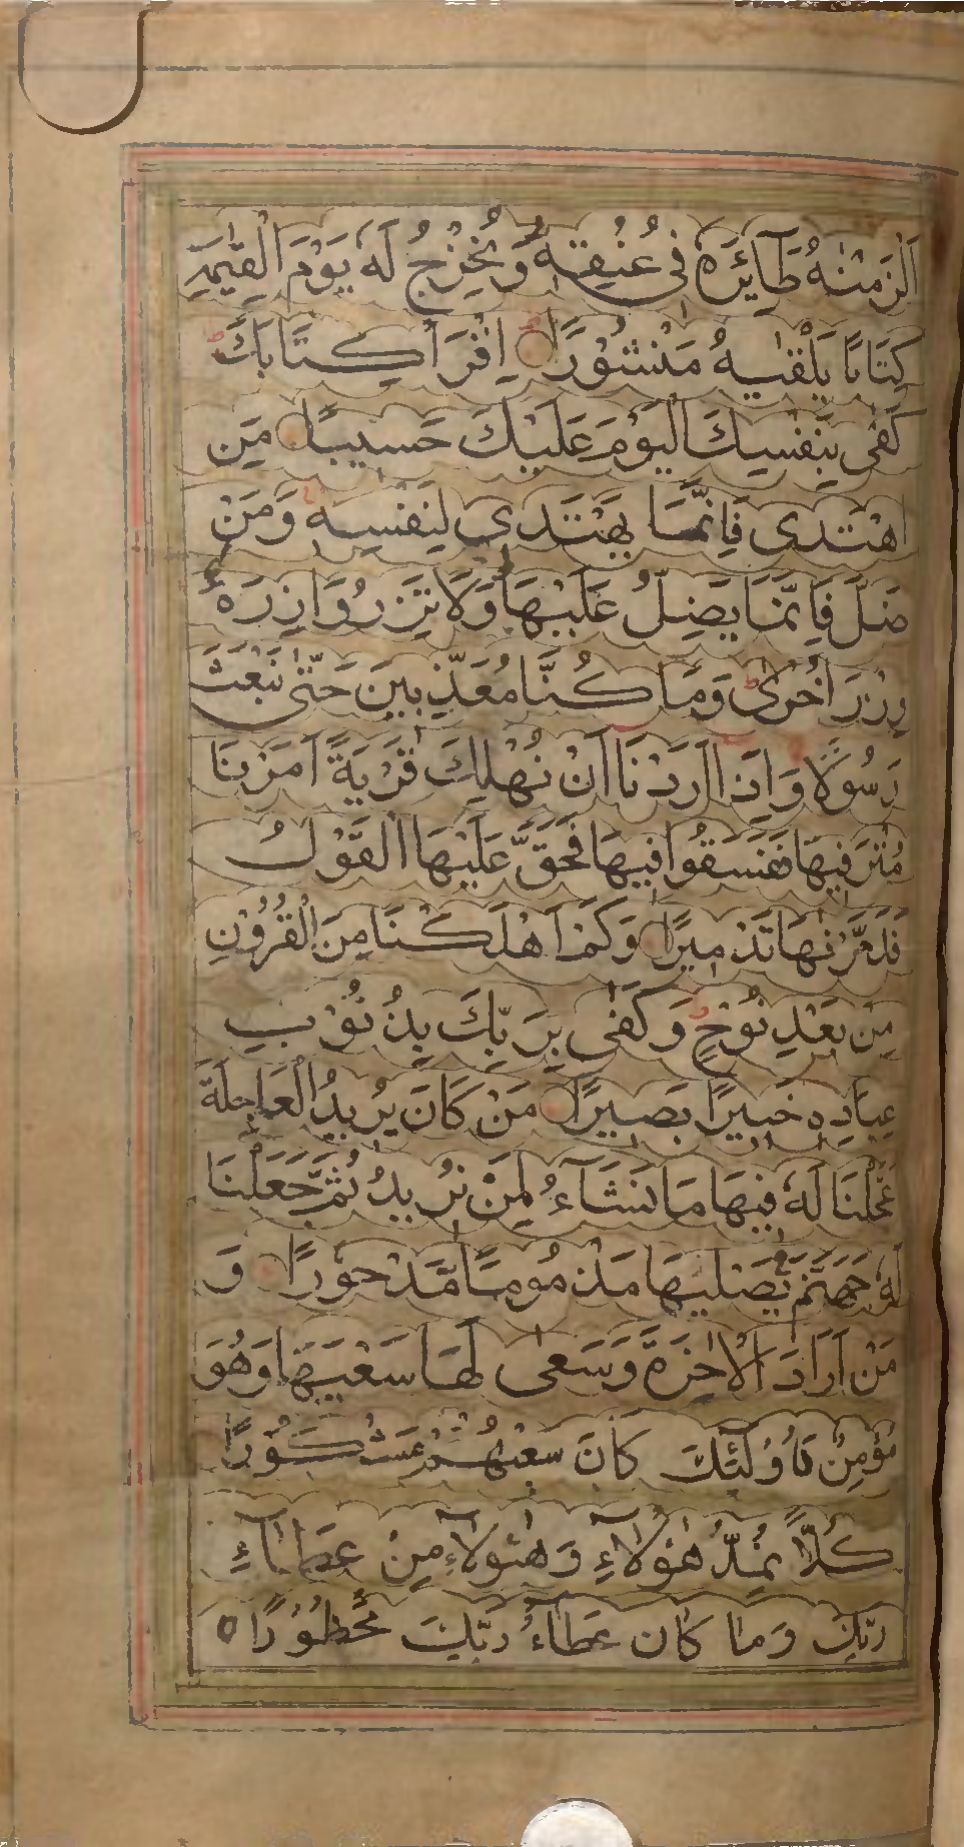 اَلْزَمْنٰهُ طَآئِرَهٗ فِیْ عُنُقِهٖ وَنُخْرِجُ لَهٗ یَوْمَ الْقِیٰمَةِ
كِتَابًا یَلْقٰىهُ مَنْشُوْرًا اِقْرَاْ كِتَابَكَ
كَفٰى بِنَفْسِكَ الْیَوْمَ عَلَیْكَ حَسِیْبًا مَنِ
اهْتَدٰى فَاِنَّمَا یَهْتَدِیْ لِنَفْسِهٖ وَمَنْ
ضَلَّ فَاِنَّمَا یَضِلُّ عَلَیْهَا وَلَا تَزِرُ وَازِرَةٌ
وِزْرَ اُخْرٰى وَمَا كُنَّا مُعَذِّبِیْنَ حَتّٰى نَبْعَثَ
رَسُوْلًا وَاِذَا اَرَدْنَا اَنْ نُهْلِكَ قَرْیَةً اَمَرْنَا
مُتْرَفِیْهَا فَفَسَقُوْا فِیْهَا فَحَقَّ عَلَیْهَا الْقَوْلُ
فَدَمَّرْنٰهَا تَدْمِیْرًا وَكَمْ اَهْلَكْنَا مِنَ الْقُرُوْنِ
مِنْ بَعْدِ نُوْحٍ وَكَفٰى بِرَبِّكَ بِذُنُوْبِ
عِبَادِهٖ خَبِیْرًا بَصِیْرًا مَنْ كَانَ یُرِیْدُ الْعَاجِلَةَ
عَجَّلْنَا لَهٗ فِیْهَا مَا نَشَآءُ لِمَنْ نُرِیْدُ ثُمَّ جَعَلْنَا
لَهٗ جَهَنَّمَ یَصْلٰیهَا مَذْمُوْمًا مَّدْحُوْرًا وَ
مَنْ اَرَادَ الْاٰخِرَةَ وَسَعٰى لَهَا سَعْیَهَا وَهُوَ
مُؤْمِنٌ فَاُولٰٓئِكَ كَانَ سَعْیُهُمْ مَشْكُوْرًا
كُلًّا نُمِدُّ هٰؤُلَآءِ وَهٰٓؤُلَآءِ مِنْ عَطَآءِ
رَبِّكَ وَمَا كَانَ عَطَآءُ رَبِّكَ مَحْظُوْرًا ٥